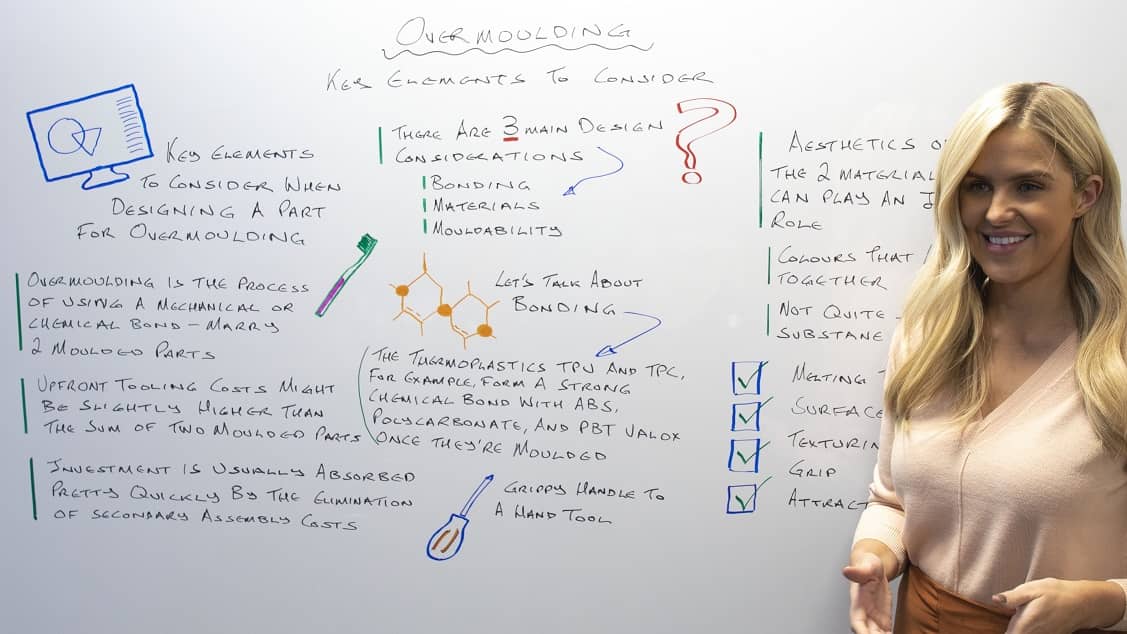 OVERMOULDING
KEY ELEMENTS TO CONSIDER
KEY ELEMENTS
TO CONSIDER WHEN
DESIGNING A PART
FOR OVERMOULDING
OVERMOULDING IS THE PROCESS
OF USING A MECHANICAL OR
CHEMICAL BOND - MARRY
2 MOULDED PARTS
UPFRONT TOOLING COSTS MIGHT
BE SLIGHTLY HIGHER THAN
THE SUM OF TWO MOULDED PARTS
INVESTMENT IS USUALLY ABSORBED
PRETTY QUICKLY BY THE ELIMINATION
OF SECONDARY ASSEMBLY COSTS
THERE ARE 3 MAIN DESIGN
CONSIDERATIONS
BONDING
MATERIALS
MOULDABILITY
?
LET'S TALK ABOUT
BONDING
THE THERMOPLASTICS TPU AND TPC,
FOR EXAMPLE, FORM A STRONG
CHEMICAL BOND WITH ABS,
POLYCARBONATE, AND PBT VALOX
ONCE THEY'RE MOULDED
GRIPPY HANDLE TO
A HAND TOOL
AESTHETICS
THE 2 MATERIAL
CAN PLAY AN
ROLE
COLOURS THAT
TOGETHER
NOT QUITE
SUBSTANE
MELTING
SURFACE
TEXTURIN
GRIP
ATTRACT